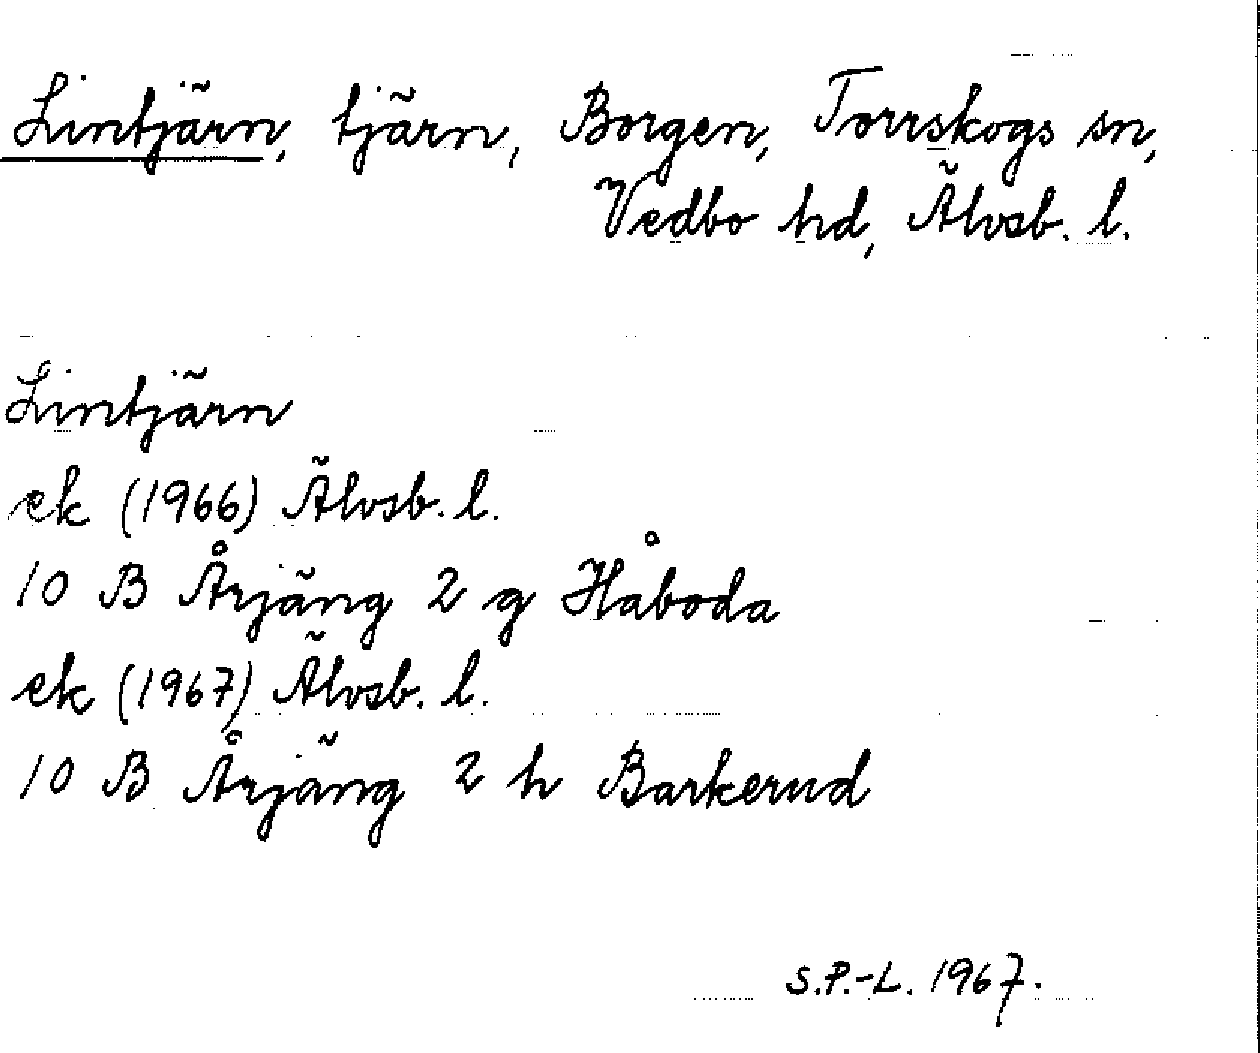 Lintjärn, tjärn, Borgen, Torrskogs sn,
Vedbo hd, Älvsb. l.
Lintjärn
ek (1966) Älvsb. l.
10 B Årjäng 2 g Håboda
ek (1967) Älvsb. l.
10 B Årjäng 2 h Barkerud
S.P.-L. 1967.